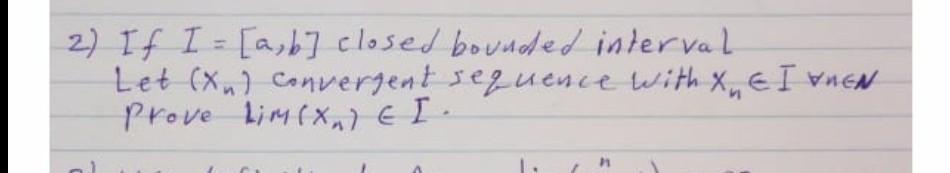 2) If I = [a,b] closed bounded interval
Let (Xn) convergent sequence with Xn ∈ I ∀n∈N
Prove Lim(Xn) ∈ I.